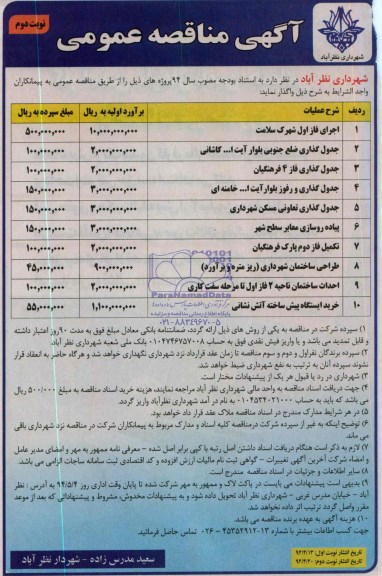 نوبت دوم
آگهی مناقصه عمومی
شهرداری نظرآباد
شهرداری نظر آباد در نظر دارد به استناد بودجه مصوب سال ۹۴ پروژه های ذیل را از طریق مناقصه عمومی به پیمانکاران
واجد الشرایط به شرح ذیل واگذار نماید:
ردیف شرح عملیات برآورد اولیه به ریال مبلغ سپرده به ریال
۱ اجرای فاز اول شهرک سلامت ۱۰,۰۰۰,۰۰۰,۰۰۰ ۵۰۰,۰۰۰,۰۰۰
۲ جدول گذاری ضلع جنوبی بلوار آیت ا... کاشانی ۲,۰۰۰,۰۰۰,۰۰۰ ۱۰۰,۰۰۰,۰۰۰
۳ جدول گذاری فاز ۴ فرهنگیان ۲,۰۰۰,۰۰۰,۰۰۰ ۱۰۰,۰۰۰,۰۰۰
۴ جدول گذاری و رفوژ بلوار آیت ا... خامنه ای ۳,۰۰۰,۰۰۰,۰۰۰ ۱۵۰,۰۰۰,۰۰۰
۵ جدول گذاری تعاونی مسکن شهرداری ۳,۰۰۰,۰۰۰,۰۰۰ ۱۵۰,۰۰۰,۰۰۰
۶ پیاده روسازی معابر سطح شهر ۳,۰۰۰,۰۰۰,۰۰۰ ۱۵۰,۰۰۰,۰۰۰
۷ تکمیل فاز دوم پارک فرهنگیان ۲,۰۰۰,۰۰۰,۰۰۰ ۱۰۰,۰۰۰,۰۰۰
۸ طراحی ساختمان شهرداری (ریز متره و برآورد) ۹۰۰,۰۰۰,۰۰۰ ۴۵,۰۰۰,۰۰۰
۹ احداث ساختمان ناحیه ۲ فاز اول تا مرحله سفت کاری ۲,۰۰۰,۰۰۰,۰۰۰ ۱۰۰,۰۰۰,۰۰۰
۱۰ خرید ایستگاه پیش ساخته آتش نشانی ۱,۱۰۰,۰۰۰,۰۰۰ ۵۵,۰۰۰,۰۰۰
ParaNamadData
۰۲۱-۸۸۳۴۹۶۷۰-۵
۱) سپرده شرکت در مناقصه به یکی از روش های ذیل ارائه گردد، ضمانتنامه بانکی معادل مبلغ فوق به مدت ۹۰ روز اعتبار داشته
و قابل تمدید می باشد و یا واریز فیش نقدی فوق به حساب ۰۱۰۴۷۴۶۷۵۷۰۰۸ بانک ملی شعبه شهرداری نظر آباد.
۲) سپرده برندگان نفر اول و دوم و سوم مناقصه تا زمان عقد قرارداد نزد شهرداری نگهداری خواهد شد و هرگاه حاضر به انعقاد قرار
نشوند سپرده آنان به ترتیب به نفع شهرداری ضبط خواهد شد.
۳) شهرداری در رد یا قبول هر یک از پیشنهادات مختار است.
۴) جهت دریافت اسناد مناقصه به واحد مالی شهرداری نظر آباد مراجعه نمایند، هزینه خرید اسناد مناقصه به مبلغ ۵۰۰/۰۰۰ ریال
می باشد که باید به حساب ۰۱۰۴۵۳۴۰۲۱۰۰۰ به نام در آمد شهرداری نظرآباد واریز گردد.
۵) در هر شرایط مدارک مندرج در اسناد مناقصه ملاک عقد قرار داد خواهد بود.
۶) توضیح اینکه به غیر از سپرده شرکت در مناقصه کلیه اسناد و مدارک مربوط به پیمانکاران شرکت در مناقصه نزد شهرداری باقی
می ماند.
۷) لازم به ذکر است هنگام دریافت اسناد داشتن اصل رتبه با کپی برابر اصل شده - معرفی نامه ممهور به مهر و امضای مدیر عامل
و امضاء شرکت آخرین آگهی تغییرات - گواهی ثبت نام مالیات ارزش افزوده و کد اقتصادی ثبت سامانه ساجات الزامی می باشد.
۸) سایر اطلاعات و جزئیات در اسناد مناقصه مندرج است.
۹) بدیهی است پیشنهادات می بایست در پاکت لاک و ممهور به مهر شرکت شده تا پایان وقت اداری روز ۹۴/۵/۴ به آدرس: نظر
آباد - خیابان مدرس غربی - شهرداری نظر آباد تحویل داده شود و به پیشنهادات مخدوش، مشروط و پیشنهاداتی که بعد از موعد
مقرر واصل گردد ترتیب اثر داده نخواهد شد.
۱۰) هزینه آگهی به عهده برنده مناقصه می باشد.
جهت کسب اطلاعات بیشتر با شماره ۱۳-۴۵۳۵۲۹۱۲ - ۰۲۶ تماس حاصل فرمائید.
تاریخ انتشار نوبت اول: ۹۴/۴/۱۳
تاریخ انتشار نوبت دوم: ۹۴/۴/۲۰
سعید مدرس زاده - شهردار نظر آباد